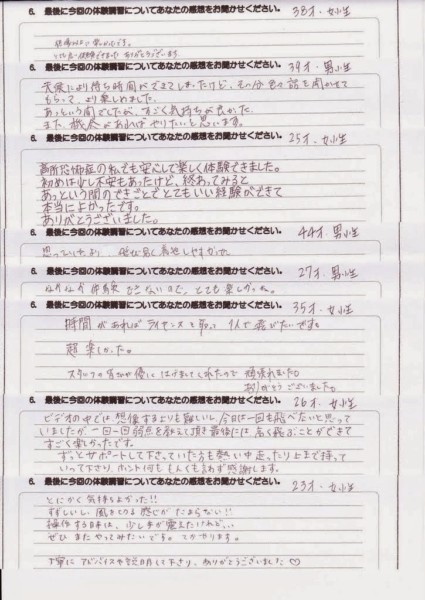 6. 最後に今回の体験講習についてあなたの感想をお聞かせください。 38才・女性
6. 最後に今回の体験講習についてあなたの感想をお聞かせください。 39才・男性
天候により待ち時間ができてしまったけど、その分色々話を聞かせて
もらって、より楽しめました。
あっという間でしたが、すごく気持ちが良かった。
また、機会があればやりたいと思います。
6. 最後に今回の体験講習についてあなたの感想をお聞かせください。 25才・女性
高所恐怖症の私でも安心して楽しく体験できました。
初めは少し不安もあったけど、終わってみると
あっという間のできごとでとてもいい経験ができて
本当によかったです。
ありがとうございました。
6. 最後に今回の体験講習についてあなたの感想をお聞かせください。 44才 男性
思っていたより
6. 最後に今回の体験講習についてあなたの感想をお聞かせください。 27才・男性
なかなか体験できないので、とても楽しかった。
6. 最後に今回の体験講習についてあなたの感想をお聞かせください。 35才・女性
時間があればライセンスを取って1人で飛びたいです。
超楽しかった。
スタッフの方が優しくはげましてくれたので頑張れました。
ありがとうございました。
6. 最後に今回の体験講習についてあなたの感想をお聞かせください。 26才・女性
ビデオの中では想像するよりも難しいし、今日は一回も飛べないと思って
いましたが、一回一回弱点を教えて頂き最後には高く飛ぶことができて
すごく楽しかったです。
ずっとサポートして下さっていた方も熱い中走ったり上まで持って
いって下さり、ホント何ももんくも言わず感謝します。
6. 最後に今回の体験講習についてあなたの感想をお聞かせください。 23才・女性
とにかく気持ちよかった!!
すずしいし、風をきる感じがたまらない!!
操作する時は、少し手が震えたけれど、、
ぜひまたやってみたいです。てかやります。
丁寧にアドバイスや説明して下さり、ありがとうございました♡